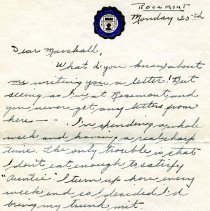 Rosemont
Monday 20th
Dear Marshall,
What do you know about
me writing you a letter! But
seeing as I'm at Rosemont and
you never get any letters from
here — — I'm spending a whole
week and having a real sharp
time. The only trouble is that
I don't eat enough to satisfy
"Auntie" I turn up here every
week end so I decided I'd
bring my trunk next